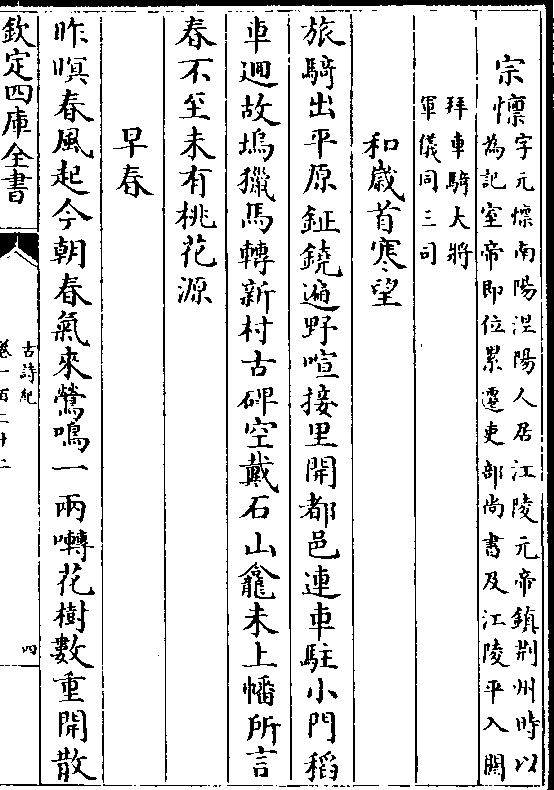 宗懍字元懍南陽涅陽人居江陵元帝鎮荆州時以
為記室帝即位累遷吏部尚書及江陵平入關
拜車騎大將
軍儀同三司
和歲首寒望
旅騎出平原鉦鐃遍野喧接里開都邑連車駐小門稻
車迴故塢獵馬轉新村古碑空戴石山龕未上幡所言
春不至未有桃花源
早春
昨暝春風起今朝春氣來鶯鳴一兩囀花樹數重開散
欽定四庫全書
古詩紀
卷一百二十二
四